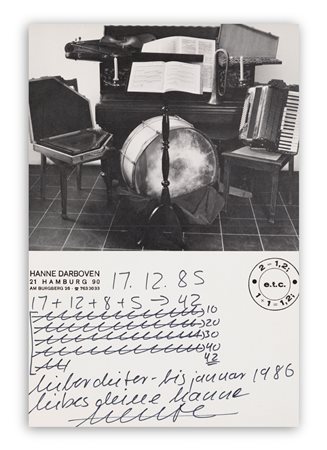 HANNE DARBOVEN
21 HAMBURG 90
AM BURGBERG 26 - ☎ 7633033
17.12.85
2-1,2;
e.t.c.
1+1-1,2;
17+12+8+5 → 42
10
20
30
40
42
lieber dieter - bis januar 1986
liebes deine hanne
heute